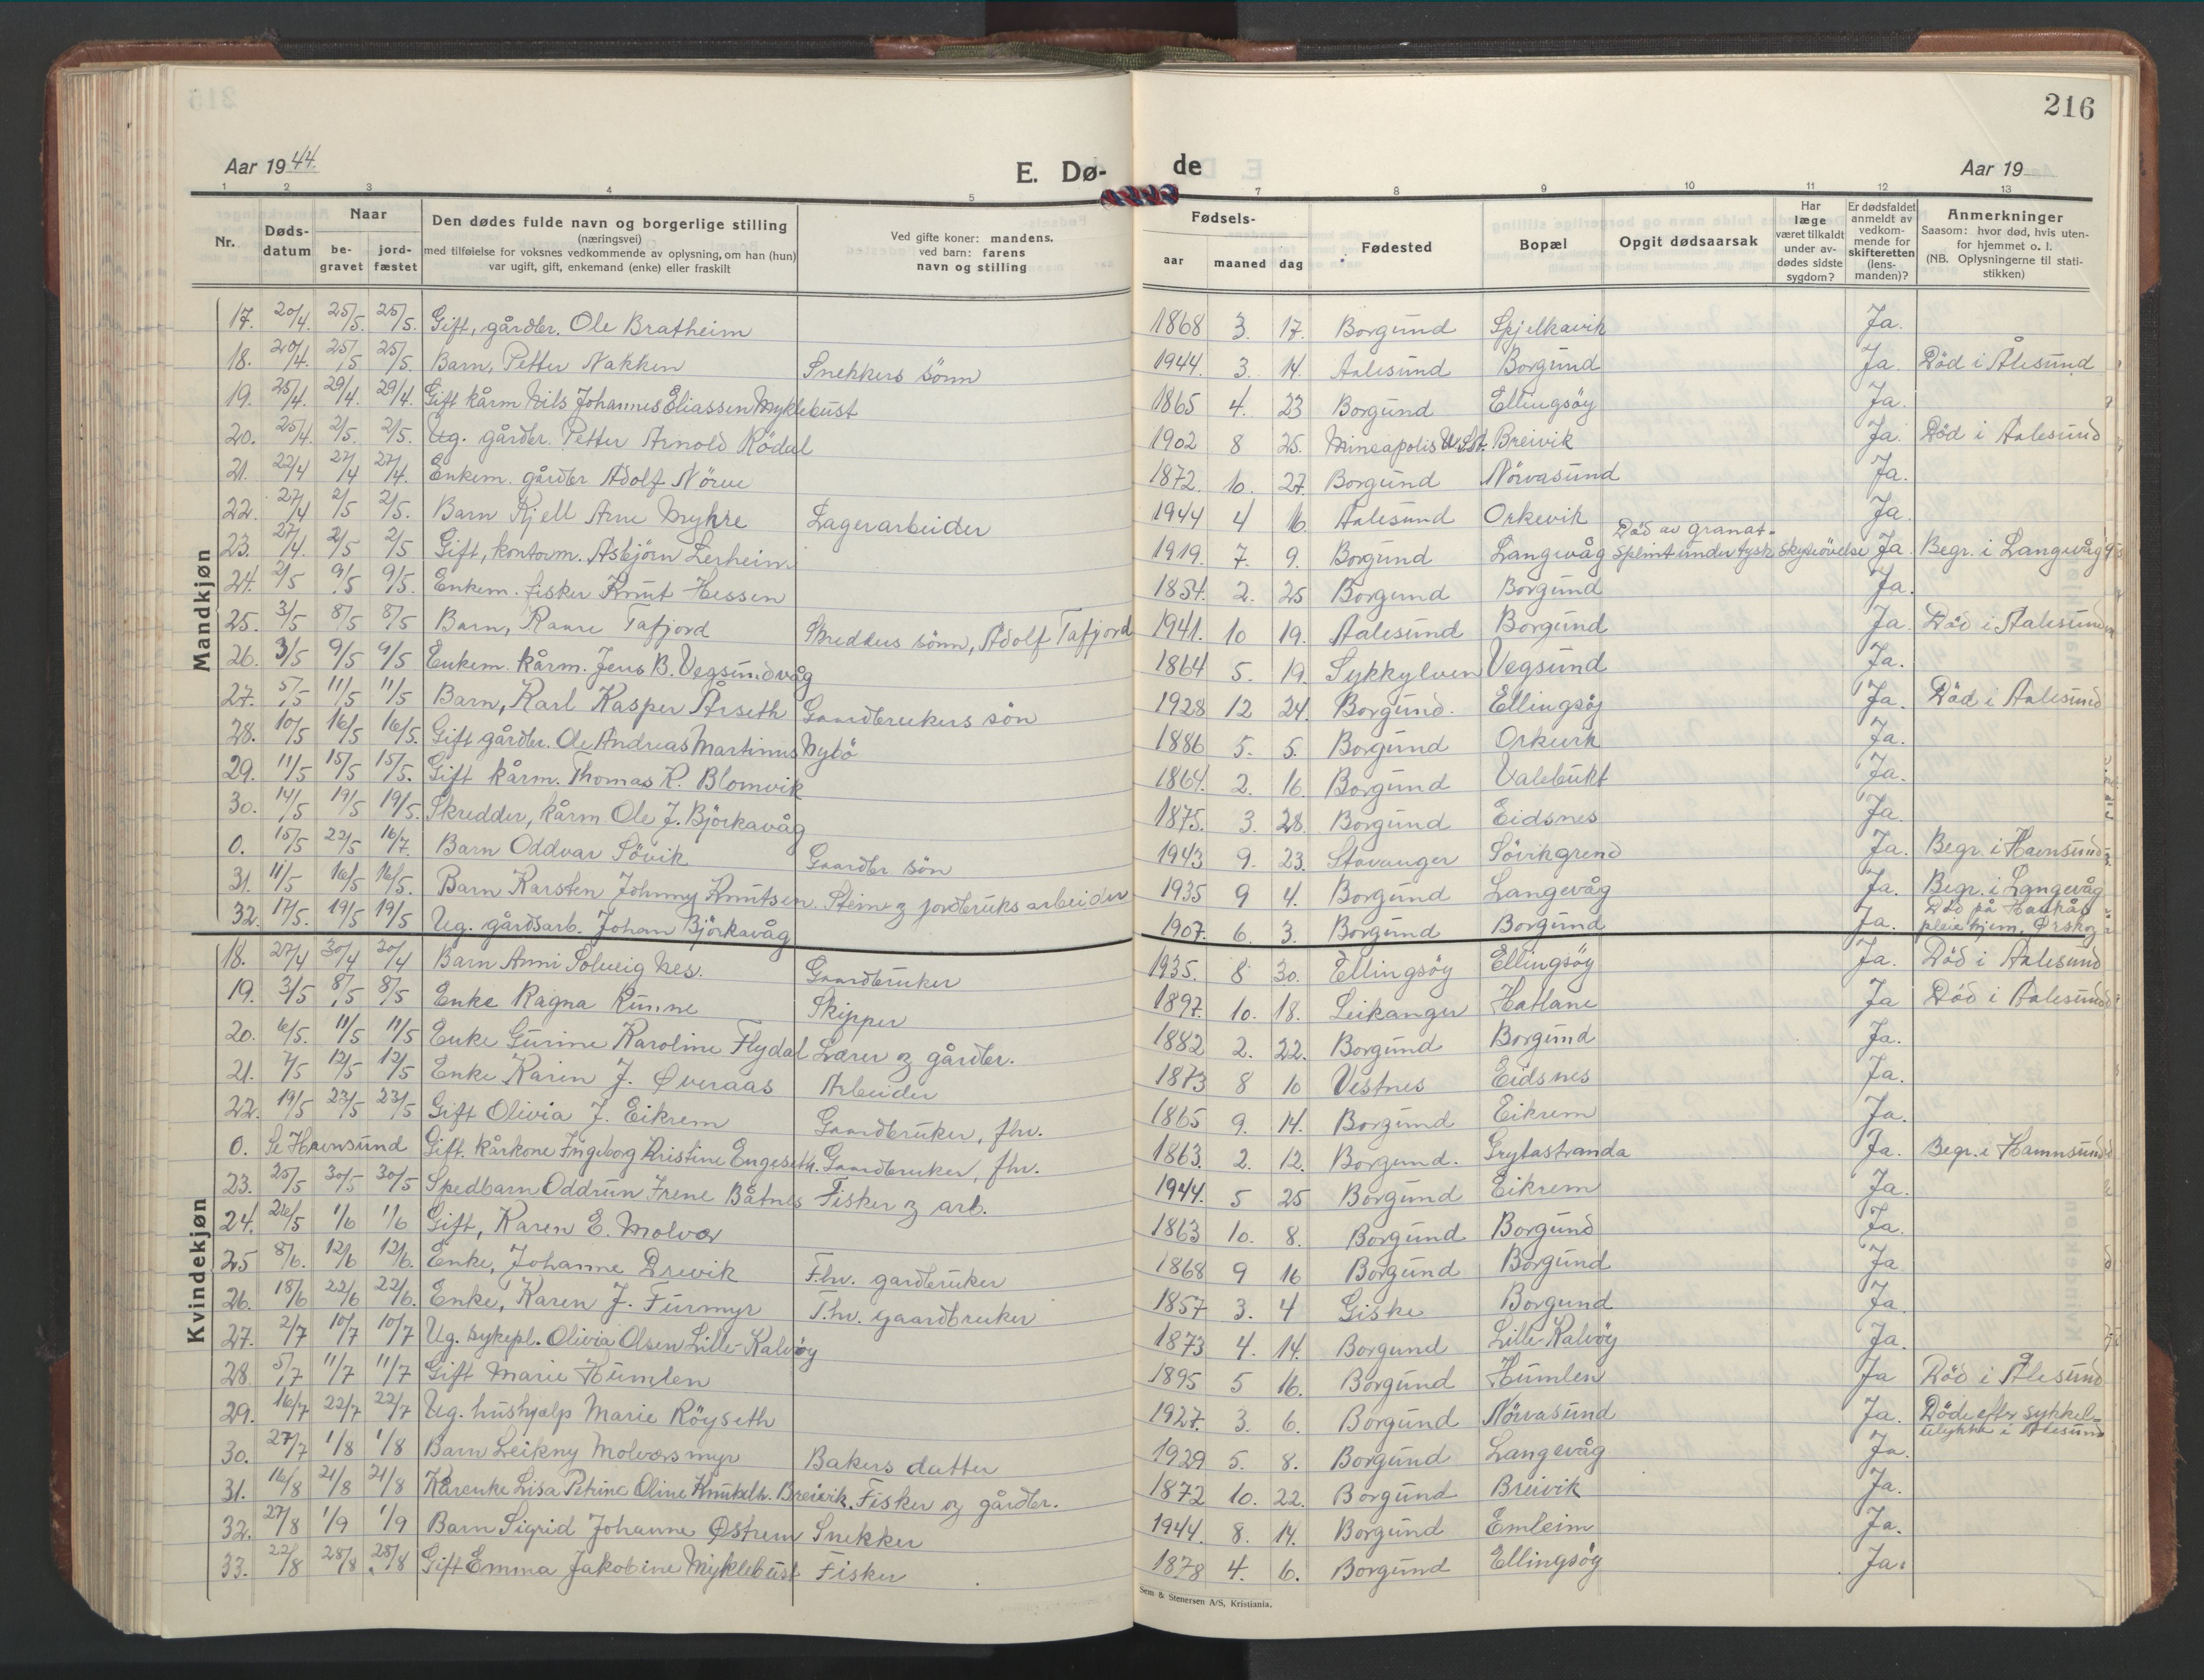 216
Aar 1944.
E. Dø- de
Aar 19
1 2 3 4 5 7 8 9 10 11 12 13
Nr.
Dødsdatum
Naar
begravet
jordfæstet
Den dødes fulde navn og borgerlige stilling
(næringsvei)
med tilføielse for voksnes vedkommende av oplysning, om han (hun)
var ugift, gift, enkemand (enke) eller fraskilt
Ved gifte koner: mandens.
ved barn: farens
navn og stilling
Fødsels-
aar maaned dag
Fødested
Bopæl
Opgit dødsaarsak
Har læge været tilkaldt under avdødes sidste sygdom?
Er dødsfaldet anmeldt av vedkommende for skifteretten (lensmanden)?
Anmerkninger
Saasom: hvor død, hvis utenfor hjemmet o. l.
(NB. Oplysningerne til statistikken)
Mandkjøn
17. 20/4. 25/5. 25/5. Gift, gårdbr. Ole Bratheim 1868 3. 17. Borgund Spjelkavik Ja.
18. 20/4. 25/5 25/5. Barn, Petter Nakken Snekkers sönn 1944. 3. 14. Aalesund Borgund Ja. Död i Ålesund
19. 25/4. 29/4. 29/4. Gift kårm Nils Johannes Eliassen Myklebust 1865 4. 23 Borgund Ellingsöy Ja.
20. 25/4. 2/5. 2/5. Ug. gårdbr. Petter Arnold Rödal 1902 8 25. Mineapolis U.St. Breivik Ja. Död i Aalesund
21. 22/4 27/4 27/4. Enkem. gårdbr Adolf Nörve 1872. 10. 27. Borgund Nörvasund Ja.
22. 27/4 2/5 2/5. Barn Kjell Arne Myhre Lagerarbeider 1944 4 16. Aalesund Orkevik Ja.
23. 27/4. 2/5 2/5 Gift, kontorm. Asbjörn Lerheim 1919. 7. 9. Borgund Langevåg Död av granatsplint under tysk skyteövelse Ja. Begr. i Langevåg
24. 2/5 9/5 9/5. Enkem. fisker Knut Hessen 1854. 2. 25 Borgund Borgund Ja.
25. 3/5 8/5 8/5. Barn, Raare Tafjord Skredders sönn, Adolf Tafjord 1941. 10 19. Aalesund Borgund Ja. Död i Aalesund
26. 3/5 9/5 9/5 Enkem. kårm. Jens B. Vegsundvåg 1864 5. 19. Sykkylven Vegsund Ja.
27. 5/5 11/5 11/5 Barn, Karl Kasper Årseth Gaardbrukers sön 1928 12 24. Borgund. Ellingsöy Ja. Död i Aalesund
28. 10/5 16/5 16/5. Gift gårdbr. Ole Andreas Martinus Nybö 1886 5. 5. Borgund Orkevik Ja.
29. 11/5 15/5 15/5. Gift kårm. Thomas K. Blomvik 1864. 2. 16. Borgund Valebukt Ja.
30. 14/5 19/5 19/5. Skredder, kårm Ole J. Björkavåg 1875. 3. 28. Borgund Eidsnes Ja.
0. 15/5 22/5 16/7. Barn Oddvar Sövik Gaardbr sön 1943 9. 23. Stavanger Sövikgrend Ja. Begr. i Havnsund
31. 11/5 16/5 16/5. Barn Karsten Johnny Knutsen. Steine og jordbruks arbeider 1935 9 4. Borgund Langevåg Ja. Begr. i Langevåg
32. 17/5. 19/5 19/5 Ug. gårdsarb. Johan Björkavåg 1907. 6. 3. Borgund Borgund Ja. Död på Haukås pleiehjem, Ørskog
Kvindekjøn
18. 27/4 30/4 30/4 Barn Anni Solveig Nes. Gaardbruker 1935. 8 30. Ellingsöy Ellingsöy Ja. Död i Aalesund
19. 3/5 8/5 8/5 Enke Ragna Runne Skipper 1897. 10. 18. Leikanger Hatlane Ja Död i Aalesund
20. 6/5. 11/5 11/5 Enke Gurine Karoline Flydal Lærer og gårdbr. 1882 2. 22. Borgund Borgund Ja.
21. 7/5 12/5 12/5 Enke Karen J. Øveraas Arbeider 1873 8 10 Vestnes Eidsnes Ja.
22. 19/5 23/5 23/5 Gift Olivia J. Eikrem Gaardbruker, fhv. 1865 9. 14. Borgund Eikrem Ja.
0. Se Havnsund Gift. kårkone Ingeborg Kristine Engeseth. Gaardbruker, fhv. 1863. 2. 12. Borgund. Grytastranda Ja. Begr. i Hamnsund
23. 25/5 30/5 30/5 Spedbarn Oddrun Irene Båtnes Fisker og arb. 1944. 5 25 Borgund Eikrem Ja.
24. 26/5 1/6 1/6 Gift, Karen E. Molvær 1863 10. 8. Borgund Borgund Ja.
25 8/6. 12/6 12/6. Enke, Johanne Drevik F.hv. gardbruker 1868 9 16 Borgund Borgund Ja
26. 18/6 22/6 22/6. Enke, Karen J. Furmyr F.hv. gaardbruker 1857 3. 4 Giske Borgund Ja.
27. 2/7 10/7 10/7 Ug. sykepl. Olivia Olsen Lille-Kalvöy 1873 4. 14. Borgund Lille-Kalvöy Ja.
28. 5/7 11/7 11/7 Gift Marie Humlen 1895 5 16. Borgund Humlen Ja Död i Ålesund
29. 16/7 22/7 22/7 Ug. hushjælp Marie Röyseth 1927. 3. 6. Borgund Nörvasund Ja. Döde efter sykkelulykke i Ålesund
30. 27/7 1/8 1/8 Barn Leikny Molværsmyr Bakers datter 1929 5. 8. Borgund Langevåg Ja.
31. 16/8 21/8 21/8 Kårenke Lisa Petrine Oline Knutsdtr. Breivik. Fisker og gårdbr. 1872 10. 22. Borgund Breivik Ja.
32. 27/8 1/9 1/9 Barn Sigrid Johanne Østrem Snekker 1944. 8. 14. Borgund Emleim Ja.
33. 22/8 28/8 28/8 Gift Emma Jakobine Myklebust Fisker 1878 4. 6. Borgund Ellingsöy Ja.
Sem & Stenersen A/S, Kristiania.